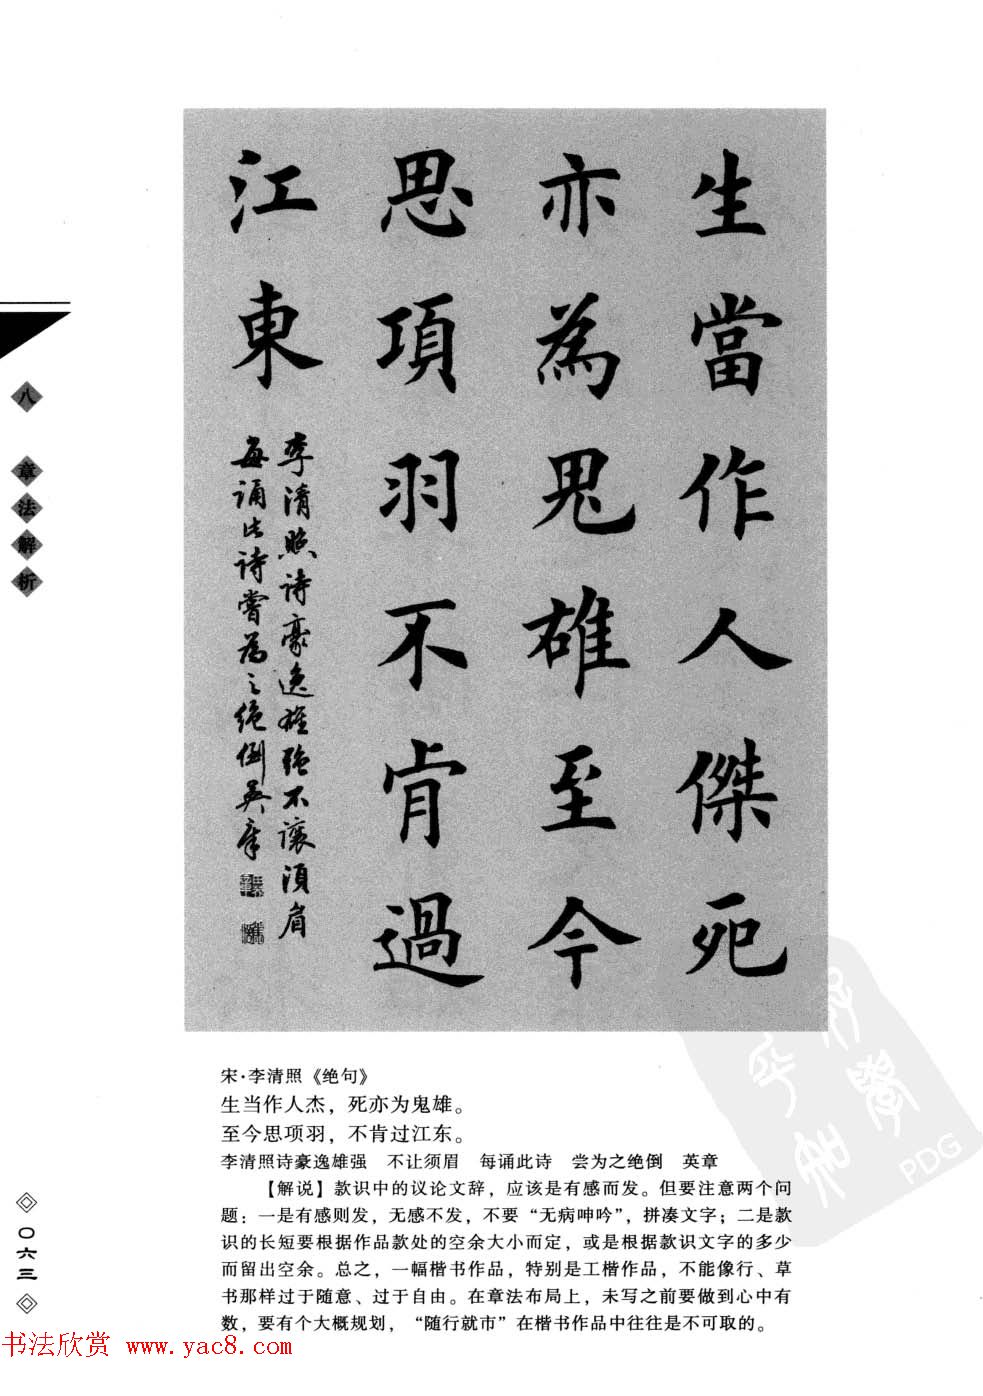 生當作人傑死
亦為鬼雄至今
思項羽不肯過
江東
李清照诗豪逸雄强不讓須眉
每誦此诗嘗為之绝倒英章
八 章法解析
宋·李清照《绝句》
生当作人杰，死亦为鬼雄。
至今思项羽，不肯过江东。
李清照诗豪逸雄强 不让须眉 每诵此诗 尝为之绝倒 英章
【解说】款识中的议论文辞，应该是有感而发。但要注意两个问
题：一是有感则发，无感不发，不要“无病呻吟”，拼凑文字；二是款
识的长短要根据作品款处的空余大小而定，或是根据款识文字的多少
而留出空余。总之，一幅楷书作品，特别是工楷作品，不能像行、草
书那样过于随意、过于自由。在章法布局上，未写之前要做到心中有
数，要有个大概规划，“随行就市”在楷书作品中往往是不可取的。
〇六三
书法欣赏 www.yac8.com
PDG